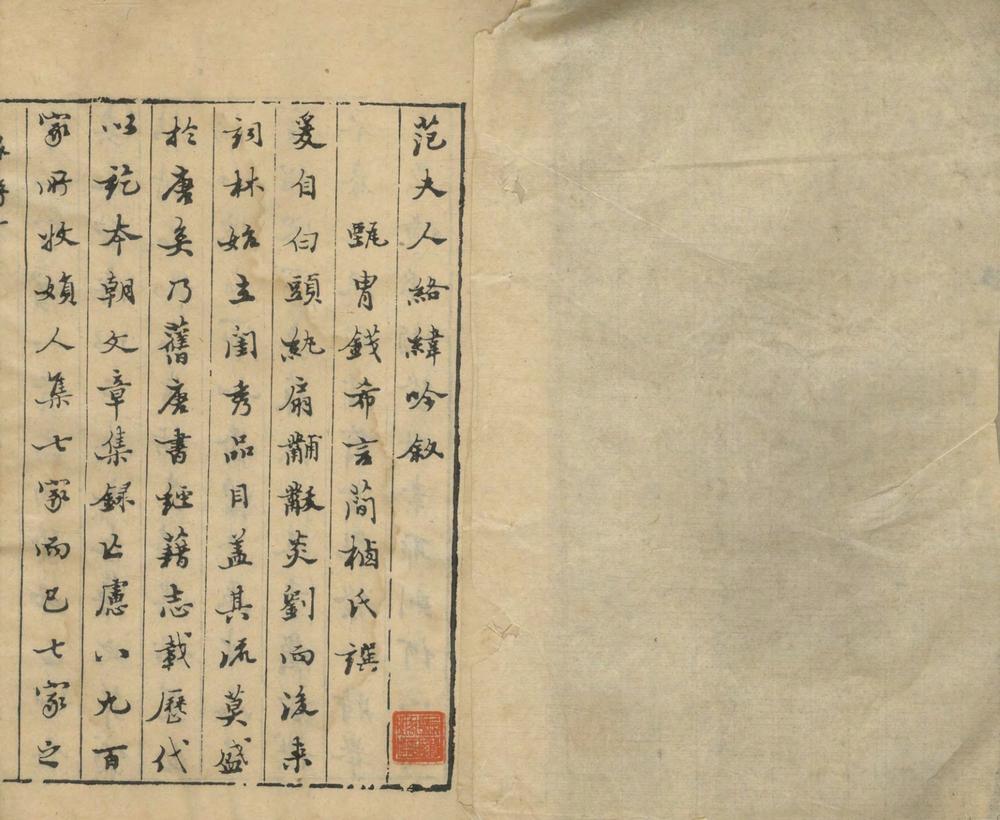 范夫人絡緯吟敘
甄冑錢希言簡栖氏譔
爰自白頭紈扇黼黻炎劉而後來
詞林始立閨秀品目盖其流莫盛
於唐矣乃舊唐書經藉志載歷代
以訖本朝文章集録亡慮八九百
家所收嬪人集七家而已七家之